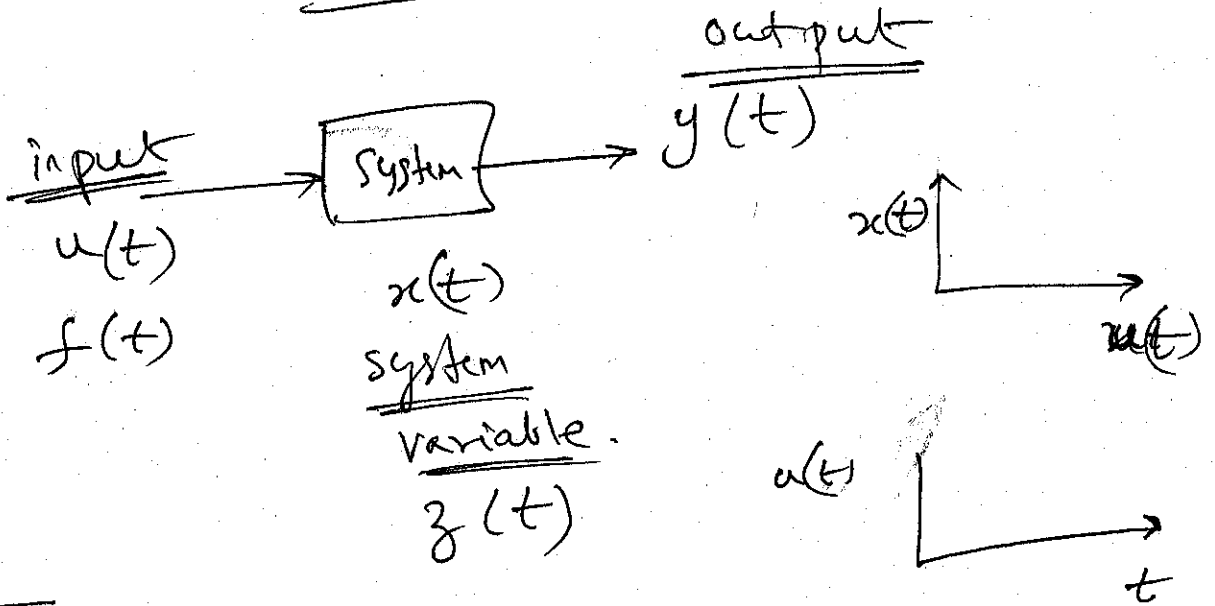 output
y(t)
input
system
u(t)
f(t)
x(t)
system
variable.
z(t)
x(t)
u(t)
t